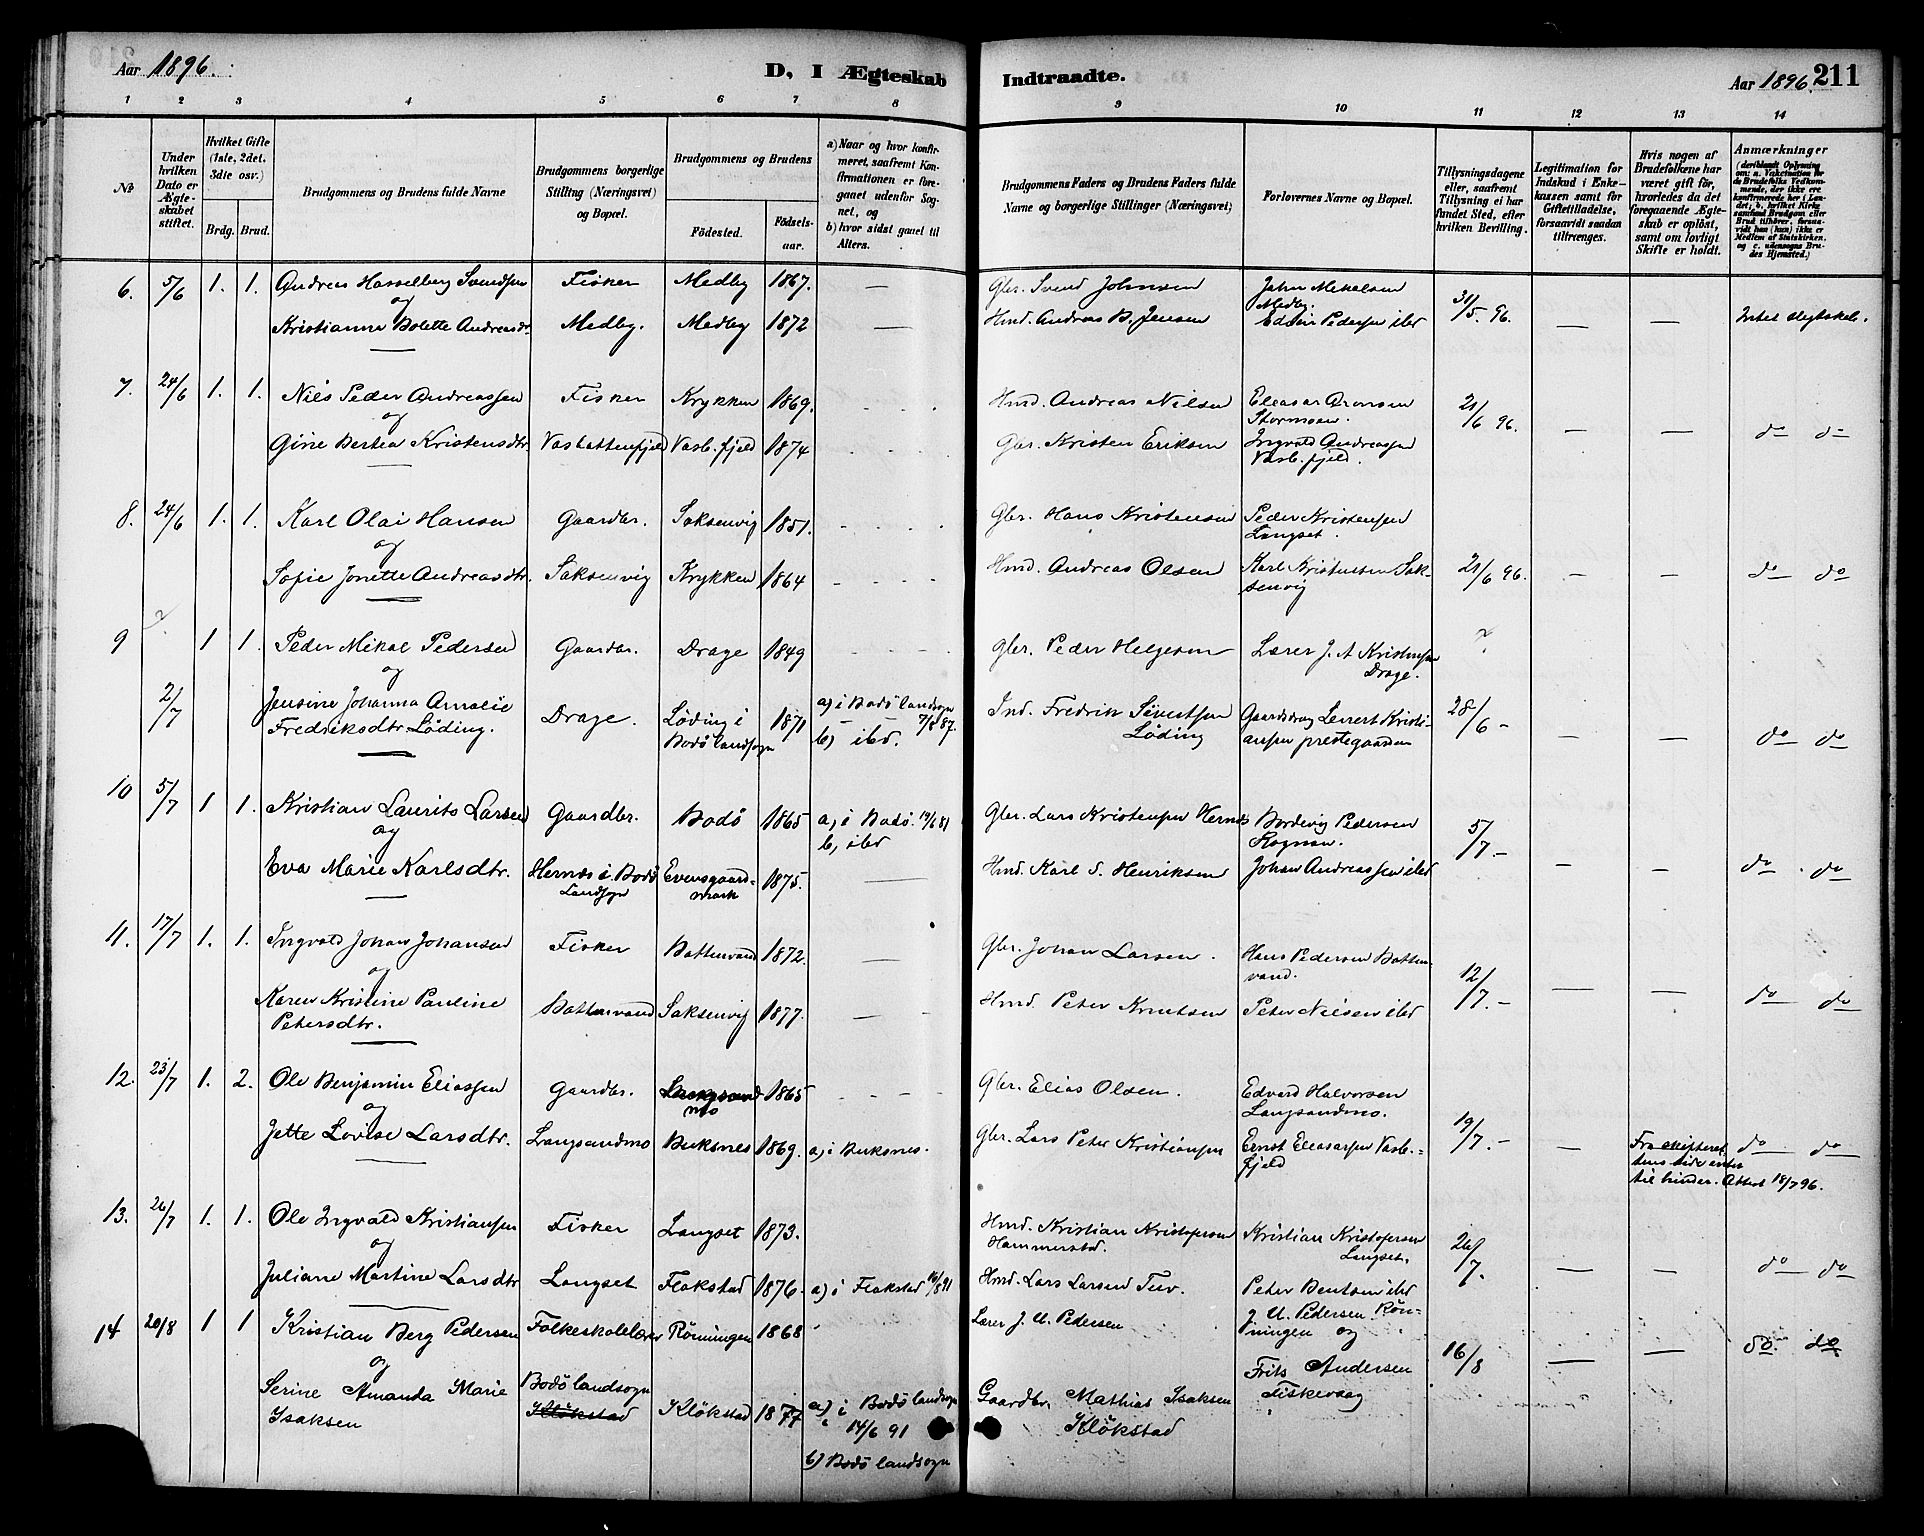 Aar 1896.
D, I Ægteskab Indtraadte.
Aar 1896. 211
1 2 3 4 5 6 7 8 9 10 11 12 13 14
No
Under hvilken Dato er Ægteskabet stiftet.
Hvilket Gifte (1ste, 2det, 3die osv.)
Brdg. Brud.
Brudgommens og Brudens fulde Navne
Brudgommens borgerlige Stilling (Næringsvei) og Bopæl.
Brudgommens og Brudens
Fødested.
Fødselsaar.
a) Naar og hvor konfirmeret, saafremt Konfirmationen er foregaaet udenfor Sognet, og
b) hvor sidst gaaet til Alters.
Brudgommens Faders og Brudens Faders fulde Navne og borgerlige Stillinger (Næringsvei)
Forlovernes Navne og Bopæl.
Tillysningsdagene eller, saafremt Tillysning ei har fundet Sted, efter hvilken Bevilling.
Legitimation for Indskud i Enkekassen samt for Giftetilladelse, forsaavidt saadan tiltrænges.
Hvis nogen af Brudefolkene har været gift før, hvorledes da det foregaaende Ægteskab er opløst, samt om lovligt Skifte er holdt.
Anmærkninger
(deriblandt Oplysning om: a. Vaksination for de Brudefolks Vedkommende, der ikke ere konfirmerede her i Landet, b. hvilket Kirkesamfund Brudgom eller Brud tilhører, forsaavidt han (hun) ikke er Medlem af Statskirken, og c. udensogns Brudes Hjemsted.)
6. 5/6 1. 1. Andreas Hasselberg Svendsen Fisker Medby 1867. — Gbr. Svend Johnsen John Mikalsen Medby. 31/5. 96.
og
Kristianne Bolette Andreasdr. Medby. Medby 1872 — Hmd. Andreas B. Jensen Edvin Pedersen ibd — — Intet slegtskab.
7. 24/6 1. 1. Nils Peder Andreassen Fisker Krykken 1869. Hmd. Andreas Nilsen Eleasar Aronsen Stormoen. 21/6 96.
og
Gine Bertea Kristensdtr. Vasbottenfjeld Vasb. fjeld 1874 Gbr. Kristen Eriksen Ingvald Andreassen Vasb. fjeld. — — do do
8. 24/6 1. 1. Karl Olai Hansen Gaardbr. Saksenvig 1851. Gbr. Hans Kristensen Peder Kristensen Langset.
og
Sofie Jonette Andreasdtr. Saksenvig Krykken 1864 Hmd. Andreas Olsen Karl Kristensen Saksenvig 21/6 96. — — do do
9 ? 1 1. Peder Mikal Pedersen Gaardbr. Drage 1849 Gbr. Peder Helgesen Lærer J. A Kristensen Drage. ?
og
2/7 Jensine Johanna Amalie Fredriksdtr. Löding. Drage. Löding i Bodö landsogn 1871 a) i Bodö landsogn 7/8 87. b) ibd. Ind. Fredrik Sivertsen Löding Gaardsdrag Lenert Kristiansen prestegaarden 28/6 — — do do
10 5/7 1 1. Kristian Laurits Larsen Gaardbr. Bodö 1865 a, i Bodö. 19/6 81 b, ibd Gbr. Lars Kristensen Hernes Bordevig Pedersen Rognan. 5/7.
og
Eva Marie Karlsdtr. Hernæs i Bodö Landsogn Evensgaardmark 1875. — Hmd. Karl S. Henriksen Johan Andreassen ibd — — do do
11. 17/7 1. 1. Ingvald Johan Johansen Fisker Bottenvand 1872. — Gbr. Johan Larsen. Hans Pedersen Bottenvand. 12/7.
og
Karen Kristine Pauline Petersdtr. Bottenvand Saksenvig 1877. — Hmd. Peter Knutsen Peter Nilsen ibd — — do do
12. 23/7 1. 2. Ole Benjamin Eliassen Gaardbr. Langsandmo 1865 Gbr. Elias Olsen. Edvard Halvorsen Langsandmo.
og
Jette Lovise Larsdtr. Langsandmo Buksnes 1869. a, i Buksnes. Gbr. Lars Peter Kristiansen Ernst Eleasarsen Vasb. fjeld 19/7. — Fra skifterettens side intet til hinder. Attest 18/7 96. do do
13. 26/7 1. 1. Ole Ingvald Kristiansen Fisker Langset 1873. Hmd. Kristian Kristofersen Hammerstad. Kristian Kristofersen Langset. 26/7.
og
Juliane Martine Larsdtr Langset Flakstad 1876. a) i Flakstad 16/8 91 Hmd. Lars Larsen Tuv. Peter Bentsen ibd — — do do
14 20/8 1 1 Kristian Berg Pedersen Folkeskolelærer Röiningen 1868 Lærer J. U. Pedersen J. U. Pedersen Röiningen og
og
Serine Amanda Marie Isaksen Bodö landsogn Klökstad Klökstad 1877 a) i Bodö landsogn 14/6 91 b) Bodö landsogn Gaardbr. Mathias Isaksen Klökstad Frits Andersen Fiskevaag 16/8 — — do. do